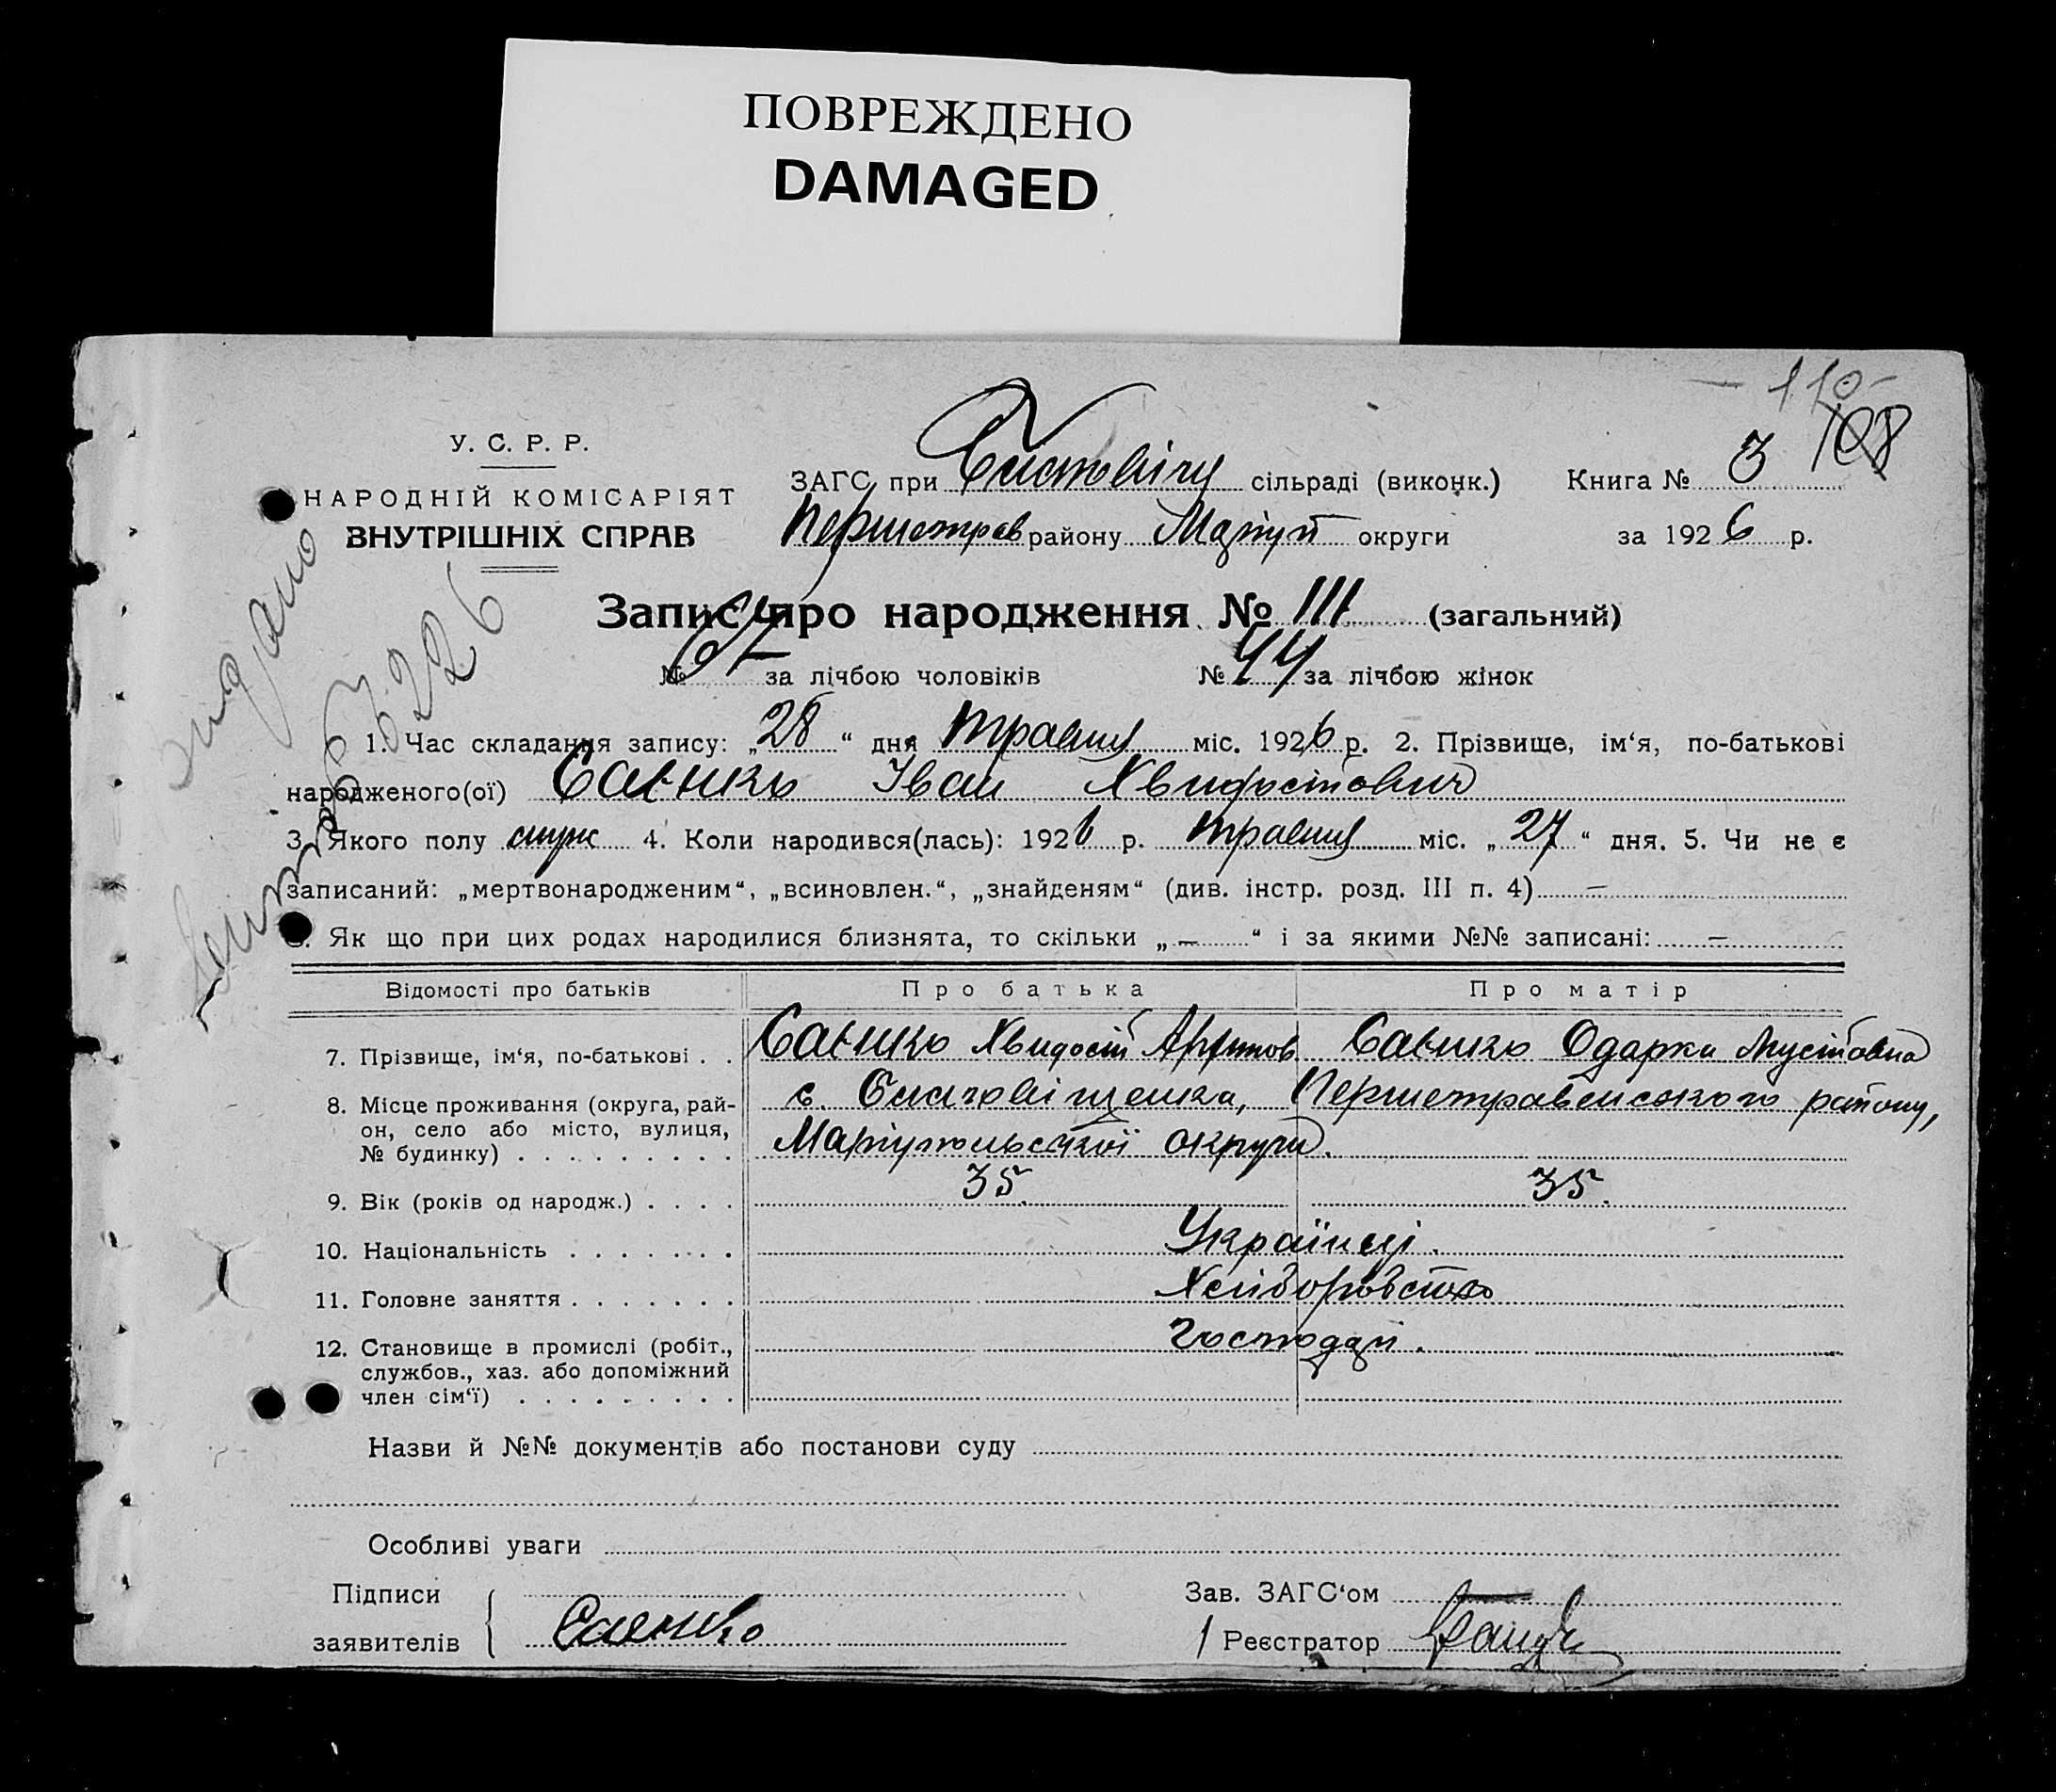 ПОВРЕЖДЕНО
DAMAGED
110
108
У. С. Р. Р.
НАРОДНІЙ КОМІСАРІЯТ
ВНУТРІШНІХ СПРАВ
ЗАГС при сільраді (виконк.) Книга № 3
Першотрав району Маріуп округи за 1926 р.
Запис про народження № 111 (загальний)
№ 67 за лічбою чоловіків № 44 за лічбою жінок
1. Час складання запису: „28“ дня травня міс. 1926 р. 2. Прізвище, ім‘я, по-батькові
народженого(ої) Саєнко Іван Хвидостович
3. Якого полу муж 4. Коли народився(лась): 1926 р. травня міс. „27“ дня. 5. Чи не є
записаний: „мертвонародженим“, „всиновлен.“, „знайденям“ (див. інстр. розд. III п. 4) —
Як що при цих родах народилися близнята, то скільки „—“ і за якими №№ записані: —
Відомості про батьків Про батька Про матір
7. Прізвище, ім‘я, по-батькові . . Саєнко Хвидосій Саєнко Одарка Мусіївна
8. Місце проживання (округа, рай-
он, село або місто, вулиця,
№ будинку) . . . . . . . . .
с. Першотравенського району,
Маріупольської округи.
9. Вік (років од народж.) . . . . 35. 35.
10. Національність . . . . . . . Українці.
11. Головне заняття . . . . . . . Хліборобство
12. Становище в промислі (робіт.,
службов., хаз. або допоміжний
член сім‘ї) . . . . . . . . .
Господарі.
Назви й №№ документів або постанови суду
Особливі уваги
Підписи
заявителів Саєнко
Зав. ЗАГС‘ом
Реєстратор